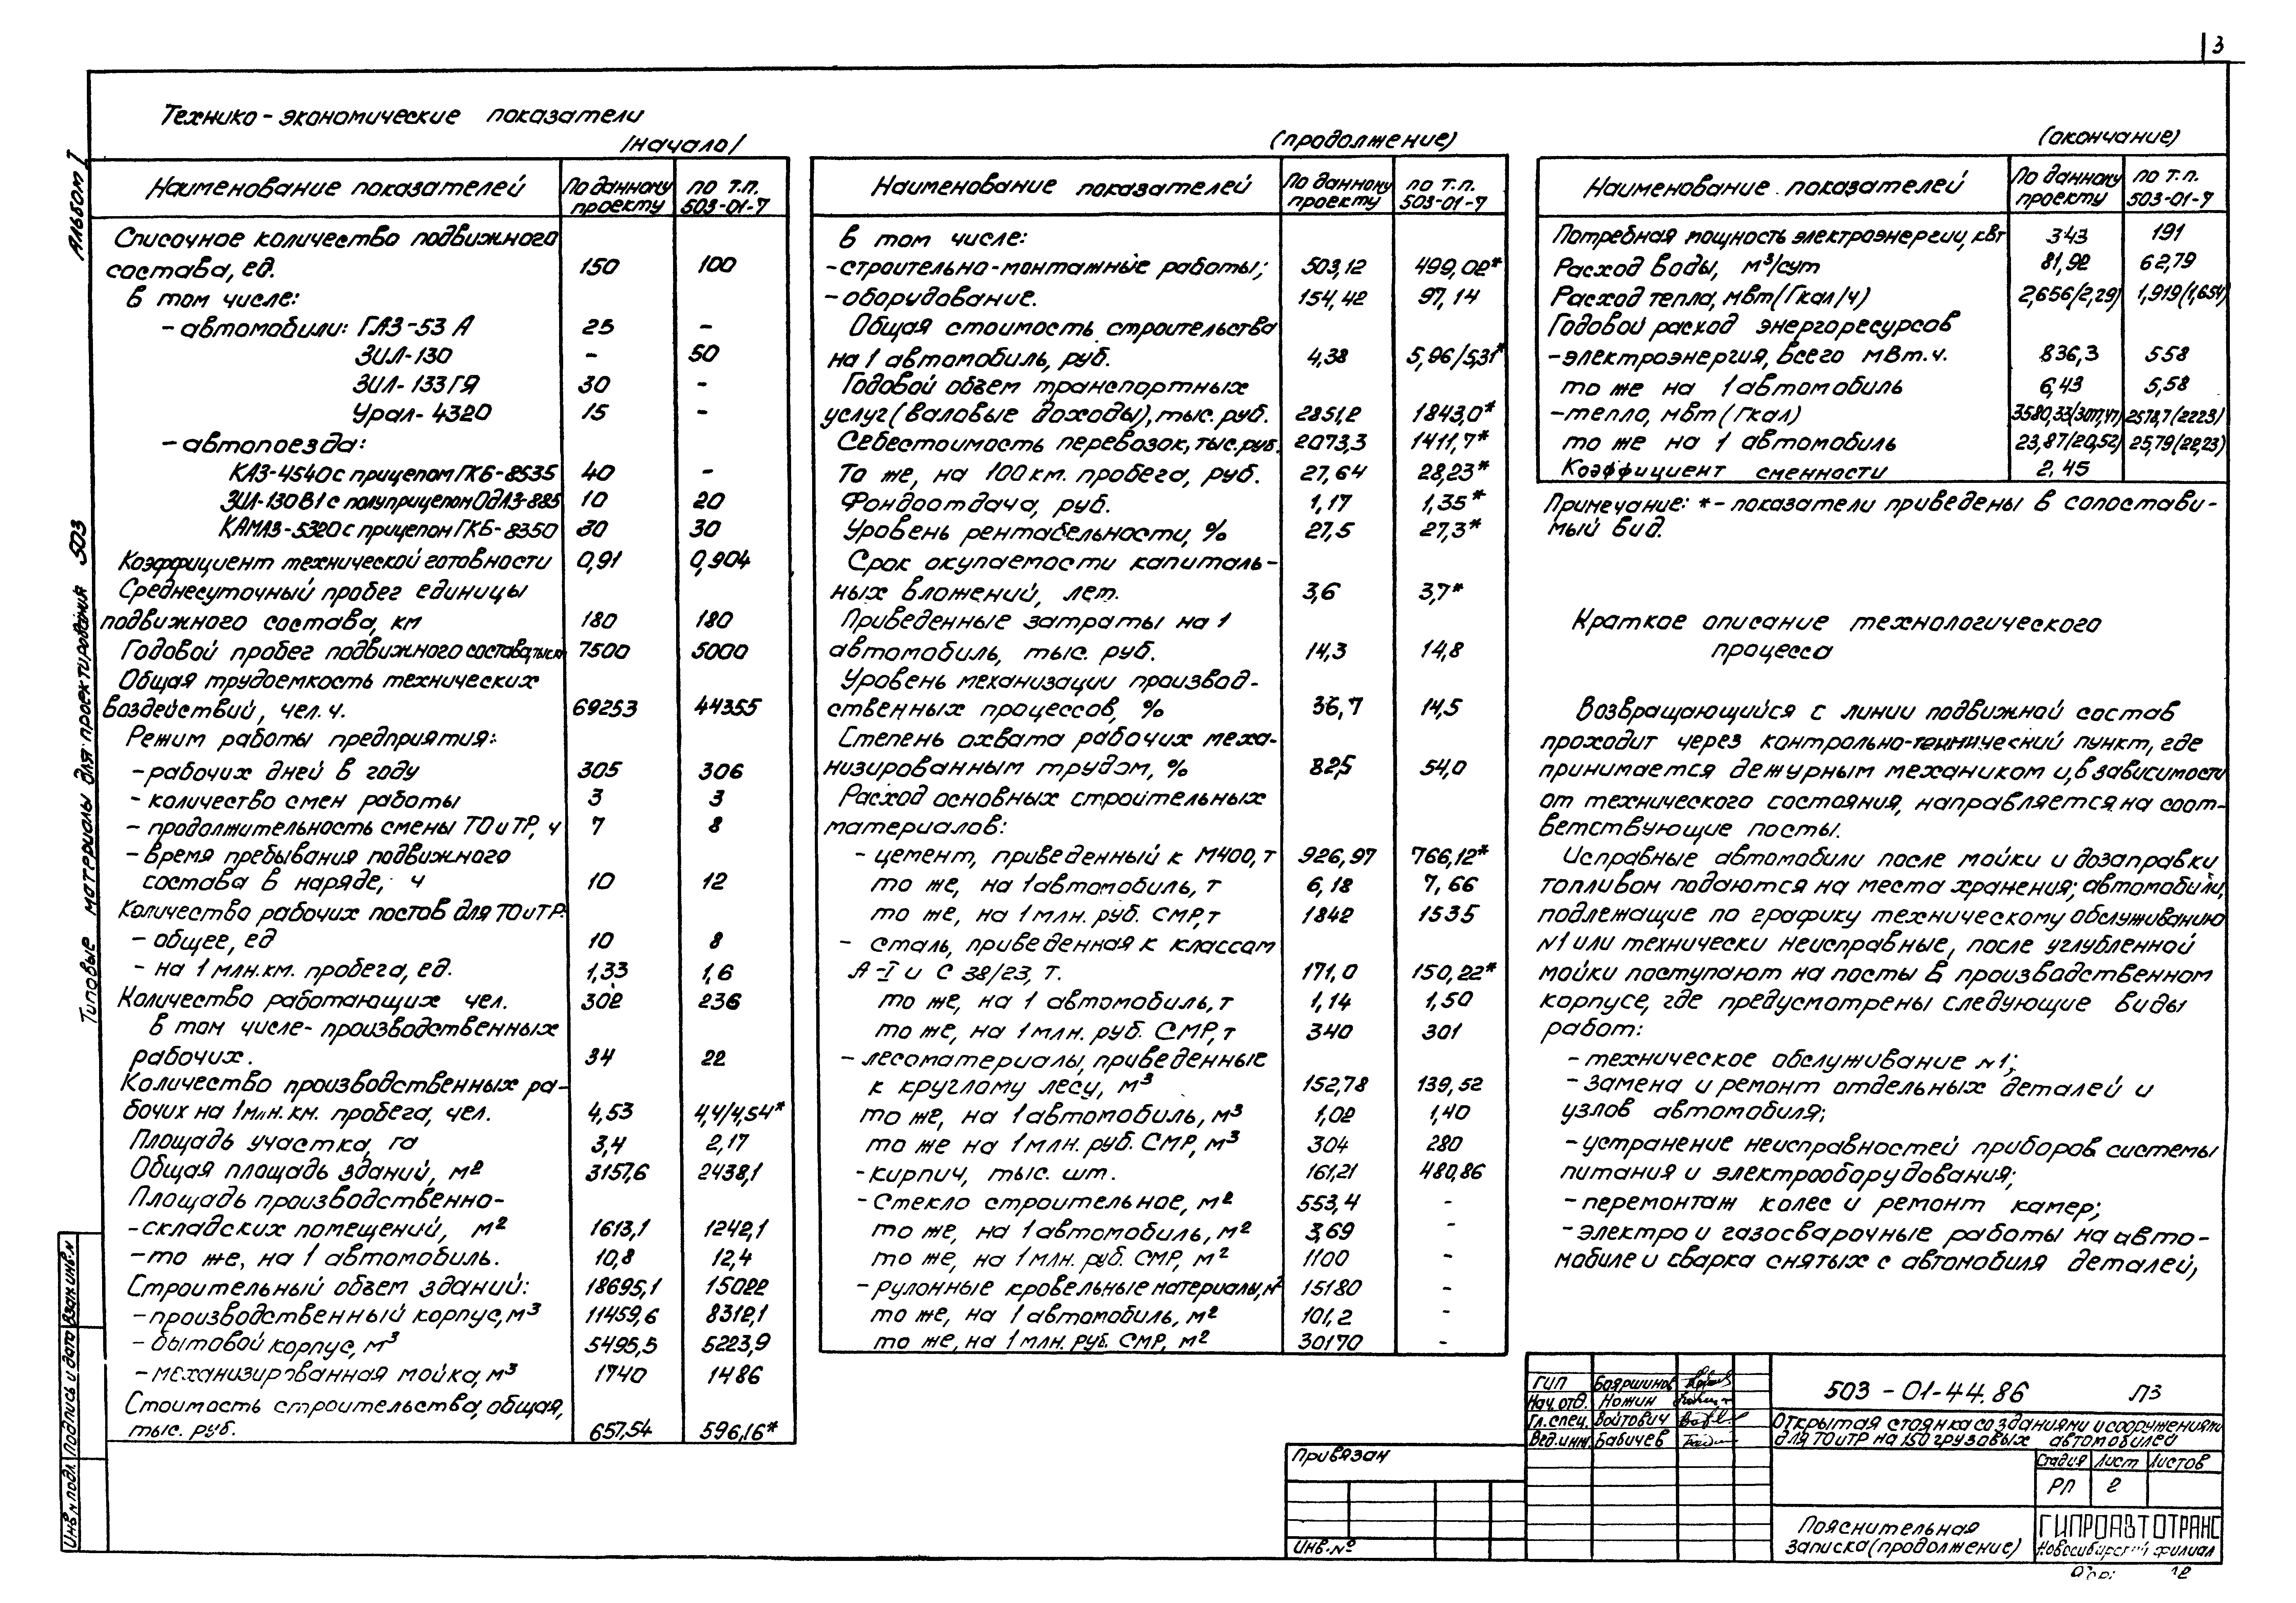 3
Альбом I
Типовые материалы для проектирования 503
Технико-экономические показатели
/начало/
Наименование показателей | По данному проекту | по т.п. 503-01-7
Списочное количество подвижного
состава, ед. 150 100
в том числе:
- автомобили: ГАЗ-53 А 25 -
ЗИЛ-130 - 50
ЗИЛ-133ГЯ 30 -
Урал-4320 15 -
- автопоезда:
КАЗ-4540 с прицепом ГКБ-8535 40 -
ЗИЛ-130В1 с полуприцепом ОдАЗ-885 10 20
КАМАЗ-5320 с прицепом ГКБ-8350 30 30
Коэффициент технической готовности 0,91 0,904
Среднесуточный пробег единицы
подвижного состава, км 180 180
Годовой пробег подвижного состава, тыс.км 7500 5000
Общая трудоемкость технических
воздействий, чел.ч. 69253 44355
Режим работы предприятия:
- рабочих дней в году 305 306
- количество смен работы 3 3
- продолжительность смены ТО и ТР, ч 7 8
- время пребывания подвижного
состава в наряде, ч 10 12
Количество рабочих постов для ТО и ТР:
- общее, ед 10 8
- на 1 млн.км. пробега, ед. 1,33 1,6
Количество работающих чел. 302 236
в том числе - производственных
рабочих. 34 22
Количество производственных ра-
бочих на 1 млн.км. пробега, чел. 4,53 4,4/4,54*
Площадь участка, га 3,4 2,17
Общая площадь зданий, м2 3157,6 2438,1
Площадь производственно-
-складских помещений, м2 1613,1 1242,1
- то же, на 1 автомобиль. 10,8 12,4
Строительный объем зданий: 18695,1 15022
- производственный корпус, м3 11459,6 8312,1
- бытовой корпус, м3 5495,5 5223,9
- механизированная мойка, м3 1740 1486
Стоимость строительства, общая,
тыс. руб. 657,54 596,16*
(продолжение)
Наименование показателей | По данному проекту | по т.п. 503-01-7
в том числе:
- строительно-монтажные работы; 503,12 499,02*
- оборудование. 154,42 97,14
Общая стоимость строительства
на 1 автомобиль, руб. 4,38 5,96/5,31*
Годовой объем транспортных
услуг (валовые доходы), тыс. руб. 2851,2 1843,0*
Себестоимость перевозок, тыс.руб. 2073,3 1411,7*
То же, на 100 км. пробега, руб. 27,64 28,23*
Фондоотдача, руб. 1,17 1,35*
Уровень рентабельности, % 27,5 27,3*
Срок окупаемости капиталь-
ных вложений, лет. 3,6 3,7*
Приведенные затраты на 1
автомобиль, тыс. руб. 14,3 14,8
Уровень механизации производ-
ственных процессов, % 36,7 14,5
Степень охвата рабочих меха-
низированным трудом, % 82,5 54,0
Расход основных строительных
материалов:
- цемент, приведенный к М400, т 926,97 766,12*
то же, на 1 автомобиль, т 6,18 7,66
то же, на 1 млн. руб. СМР, т 1842 1535
- сталь, приведенная к классам
А-I и С 38/23, т. 171,0 150,22*
то же, на 1 автомобиль, т 1,14 1,50
то же, на 1 млн. руб. СМР, т 340 301
- лесоматериалы, приведенные
к круглому лесу, м3 152,78 139,52
то же, на 1 автомобиль, м3 1,02 1,40
то же на 1 млн. руб. СМР, м3 304 280
- кирпич, тыс. шт. 161,21 480,86
- Стекло строительное, м2 553,4 -
то же, на 1 автомобиль, м2 3,69 -
то же, на 1 млн. руб. СМР, м2 1100 -
- рулонные кровельные материалы, м2 15180 -
то же, на 1 автомобиль, м2 101,2 -
то же, на 1 млн. руб. СМР, м2 30170 -
(окончание)
Наименование показателей | По данному проекту | по т.п. 503-01-7
Потребная мощность электроэнергии, кВт 343 191
Расход воды, м3/сут 81,92 62,79
Расход тепла, мвт (Гкал/ч) 2,656/2,29) 1,919(1,654)
Годовой расход энергоресурсов
- электроэнергия, всего мвт.ч. 836,3 558
то же на 1 автомобиль 6,43 5,58
- тепло, мвт (Гкал) 3580,33/3077,47) 2578,7/2223)
то же на 1 автомобиль 23,87/20,52) 25,79(22,23)
Коэффициент сменности 2,45
Примечание: * - показатели приведены в сопостави-
мый вид.
Краткое описание технологического
процесса
Возвращающийся с линии подвижной состав
проходит через контрольно-технический пункт, где
принимается дежурным механиком и, в зависимости
от технического состояния, направляется на соот-
ветствующие посты.
Исправные автомобили после мойки и дозаправки
топливом подаются на места хранения; автомобили,
подлежащие по графику техническому обслуживанию
N1 или технически неисправные, после углубленной
мойки поступают на посты в производственном
корпусе, где предусмотрены следующие виды
работ:
- техническое обслуживание N1;
- замена и ремонт отдельных деталей и
узлов автомобиля;
- устранение неисправностей приборов системы
питания и электрооборудования;
- перемонтаж колес и ремонт камер;
- электро и газосварочные работы на авто-
мобиле и сварка снятых с автомобиля деталей;
Инв.N подл. Подпись и дата Взам.инв.N
Привязан
Инв.№
ГИП Бояршинов
Нач.отд. Ножин
Гл.спец. Войтович
Вед.инж. Бабичев
503-01-44.86 ПЗ
Открытая стоянка со зданиями и сооружениями
для ТО и ТР на 150 грузовых автомобилей
Стадия Лист Листов
РП 2
Пояснительная
записка (продолжение)
ГИПРОАВТОТРАНС
Новосибирский филиал